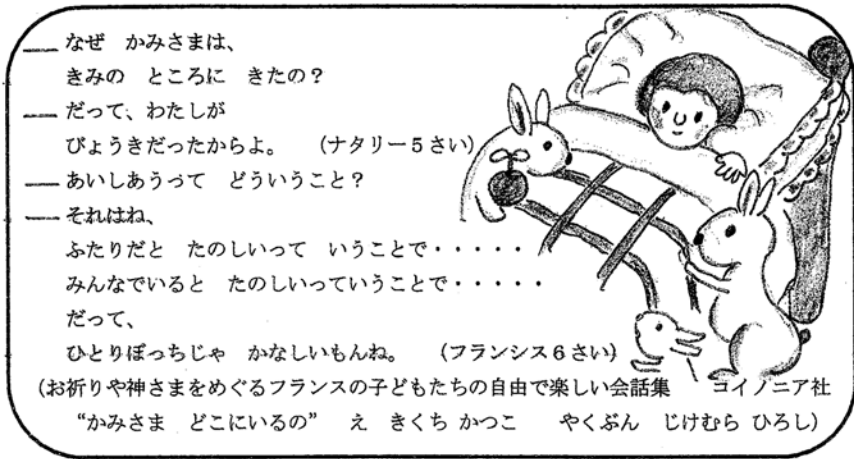 ── なぜ　かみさまは、
きみの　ところに　きたの？
── だって、わたしが
びょうきだったからよ。　（ナタリー５さい）
── あいしあうって　どういうこと？
── それはね、
ふたりだと　たのしいって　いうことで・・・・・
みんなでいると　たのしいっていうことで・・・・・
だって、
ひとりぼっちじゃ　かなしいもんね。　（フランシス６さい）
（お祈りや神さまをめぐるフランスの子どもたちの自由で楽しい会話集　コイノニア社
“かみさま　どこにいるの”　え　きくち かつこ　やくぶん　じけむら ひろし）